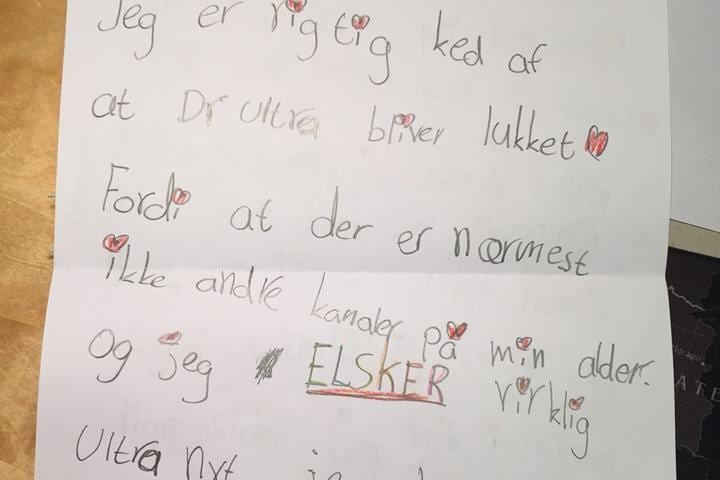 Jeg er rigtig ked af
at Dr Ultra bliver lukket
Fordi at der er nærmest
ikke andre kanaler på min alder.
Og jeg ELSKER virklig
Ultra Nyt
Chicago
ATE